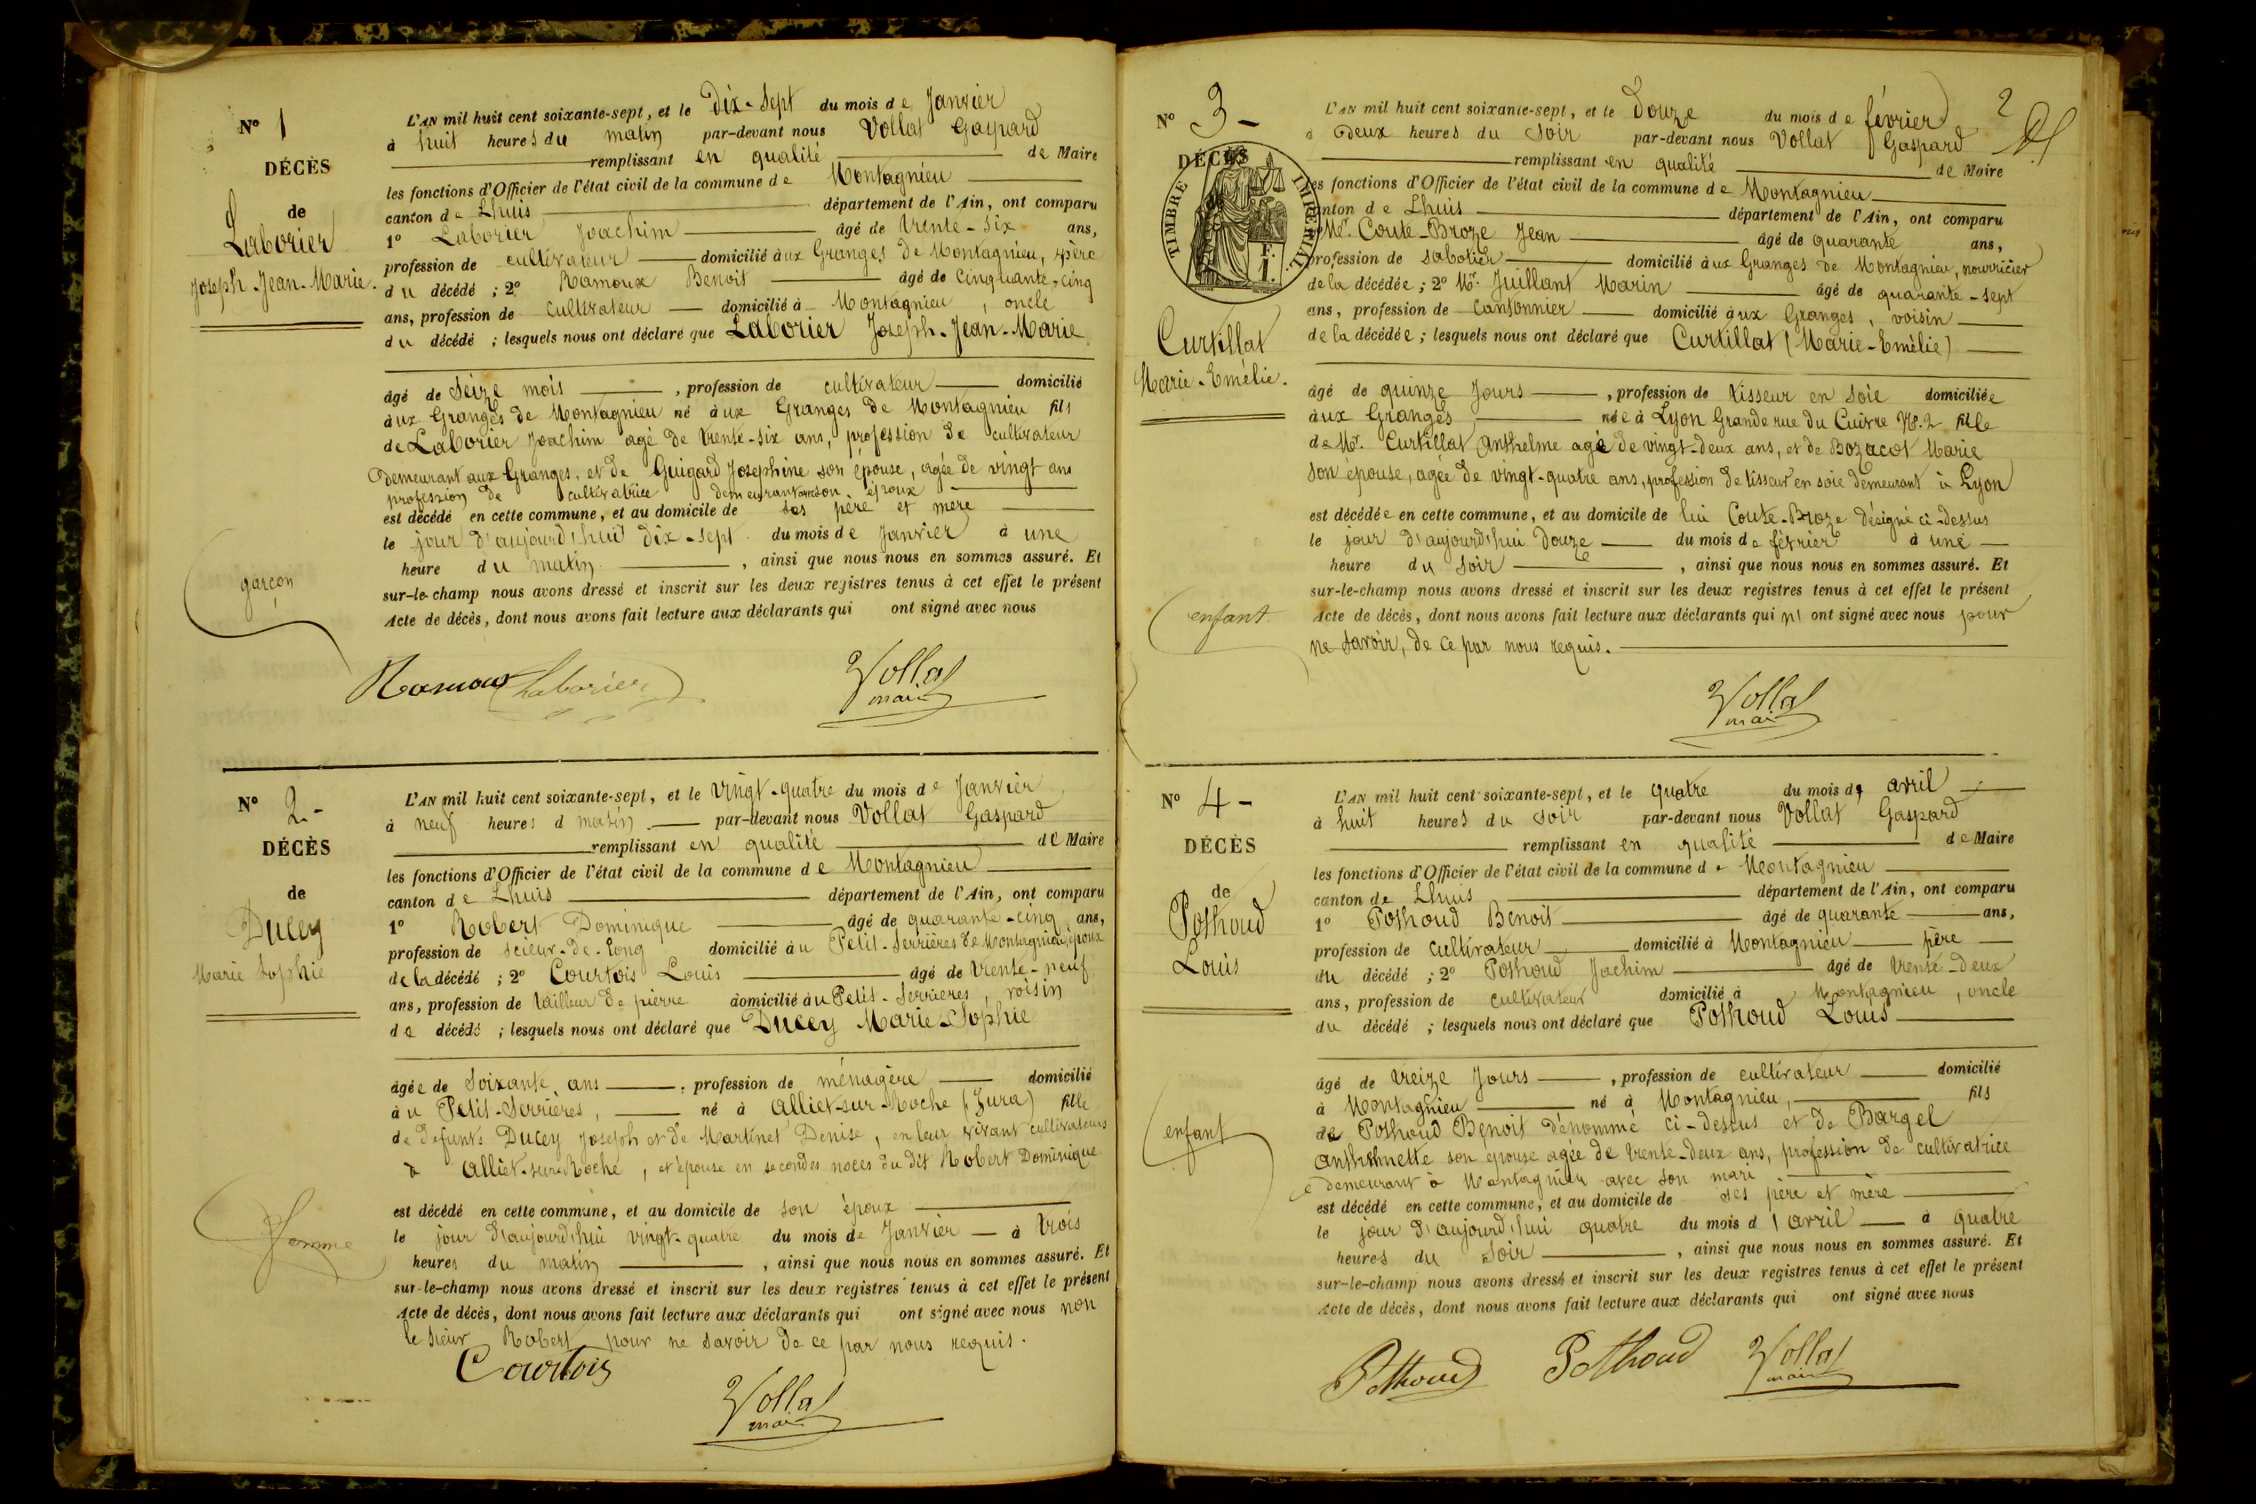 N° 1
DÉCÈS
de
Laborier
Joseph-Jean-Marie.
garçon
L'AN mil huit cent soixante-sept, et le Dix-Sept du mois de Janvier
à huit heures du matin par-devant nous Vollat Gaspard
remplissant en qualité de Maire
les fonctions d'Officier de l'état civil de la commune de Montagnieu
canton de Lhuis département de l'Ain, ont comparu
1° Laborier Joachim âgé de trente-six ans,
profession de cultivateur domicilié aux Granges de Montagnieu, père
du décédé ; 2° Ramoux Benoit âgé de cinquante-cinq
ans, profession de cultivateur domicilié à Montagnieu, oncle
du décédé ; lesquels nous ont déclaré que Laborier Joseph-Jean-Marie
âgé de Seize mois, profession de cultivateur domicilié
aux Granges de Montagnieu né aux Granges de Montagnieu fils
de Laborier Joachim agé de trente-six ans, profession de cultivateur
Demeurant aux Granges, et de Guigard Josephine son épouse, agée de vingt ans
profession de cultivatrice demeurant avec son époux
est décédé en cette commune, et au domicile de ses père et mère
le jour d'aujourd'hui dix-sept du mois de Janvier à une
heure du matin, ainsi que nous nous en sommes assuré. Et
sur-le-champ nous avons dressé et inscrit sur les deux registres tenus à cet effet le présent
Acte de décès, dont nous avons fait lecture aux déclarants qui ont signé avec nous
Ramoux Laborier Vollat
maire
N° 2-
DÉCÈS
de
Ducey
Marie Sophie
femme
L'AN mil huit cent soixante-sept, et le vingt-quatre du mois de Janvier
à neuf heures d matin par-devant nous Vollat Gaspard
remplissant en qualité de Maire
les fonctions d'Officier de l'état civil de la commune de Montagnieu
canton de Lhuis département de l'Ain, ont comparu
1° Robert Dominique âgé de quarante-cinq ans,
profession de scieur-de-long domicilié au Petit-Serrières de Montagnieu, époux
de la décédé ; 2° Courtois Louis âgé de trente-neuf
ans, profession de tailleur de pierre domicilié au Petit-Serrieres, voisin
de décédé ; lesquels nous ont déclaré que Ducey Marie-Sophie
âgée de Soixante ans, profession de ménagère domicilié
au Petit-Serrières, né à Alliet-sur-Roche (Jura) fille
de defunts Ducey Joseph et de Martinet Denise, en leur vivant cultivateurs
à Alliet-sur-Roche, et épouse en secondes noces du dit Robert Dominique
est décédé en cette commune, et au domicile de son époux
le jour d'aujourd'hui vingt-quatre du mois de Janvier à trois
heures du matin, ainsi que nous nous en sommes assuré. Et
sur-le-champ nous avons dressé et inscrit sur les deux registres tenus à cet effet le présent
Acte de décès, dont nous avons fait lecture aux déclarants qui ont signé avec nous non
le sieur Robert pour ne savoir de ce par nous requis.
Courtois
Vollat
maire
2
N° 3-
DÉCÈS
TIMBRE IMPERIAL
F.
1.
Curtillat
Marie-Emélie.
enfant
L'AN mil huit cent soixante-sept, et le Douze du mois de février
à Deux heures du soir par-devant nous Vollat Gaspard
remplissant en qualité de Maire
les fonctions d'Officier de l'état civil de la commune de Montagnieu
canton de Lhuis département de l'Ain, ont comparu
Mr. Coute-Broze Jean âgé de quarante ans,
profession de sabotier domicilié aux Granges de Montagnieu, nourricier
de la décédée ; 2° Mr. Juillant Marin âgé de quarante-sept
ans, profession de cantonnier domicilié aux Granges, voisin
de la décédée ; lesquels nous ont déclaré que Curtillat (Marie-Emélie)
âgé de quinze Jours, profession de tisseur en soie domiciliée
aux Granges née à Lyon Grande rue du Cuivre No. 2 fille
de Mr. Curtillat Anthelme agé de vingt-deux ans, et de Bozacot Marie
son épouse, agée de vingt-quatre ans, profession de tisseur en soie demeurant à Lyon
est décédée en cette commune, et au domicile de lui Coute-Broze désigné ci-dessus
le jour d'aujourd'hui Douze du mois de février à une
heure du soir, ainsi que nous nous en sommes assuré. Et
sur-le-champ nous avons dressé et inscrit sur les deux registres tenus à cet effet le présent
Acte de décès, dont nous avons fait lecture aux déclarants qui n'ont signé avec nous pour
ne savoir, de ce par nous requis.
Vollat
maire
N° 4-
DÉCÈS
de
Pothoud
Louis
enfant
L'AN mil huit cent soixante-sept, et le quatre du mois d'avril
à huit heures du soir par-devant nous Vollat Gaspard
remplissant en qualité de Maire
les fonctions d'Officier de l'état civil de la commune de Montagnieu
canton de Lhuis département de l'Ain, ont comparu
1° Pothoud Benoit âgé de quarante ans,
profession de cultivateur domicilié à Montagnieu père
du décédé ; 2° Pothoud Jachim âgé de trente-deux
ans, profession de cultivateur domicilié à Montagnieu, oncle
du décédé ; lesquels nous ont déclaré que Pothoud Louis
âgé de treize Jours, profession de cultivateur domicilié
à Montagnieu né à Montagnieu, fils
de Pothoud Benoit dénommé ci-dessus et de Bargel
Anthelmette son épouse agée de trente-deux ans, profession de cultivatrice
demeurant à Montagnieu avec son mari
est décédé en cette commune, et au domicile de ses père et mère
le jour d'aujourd'hui quatre du mois d'avril à quatre
heures du soir, ainsi que nous nous en sommes assuré. Et
sur-le-champ nous avons dressé et inscrit sur les deux registres tenus à cet effet le présent
Acte de décès, dont nous avons fait lecture aux déclarants qui ont signé avec nous
Pothoud Pothoud Vollat
maire